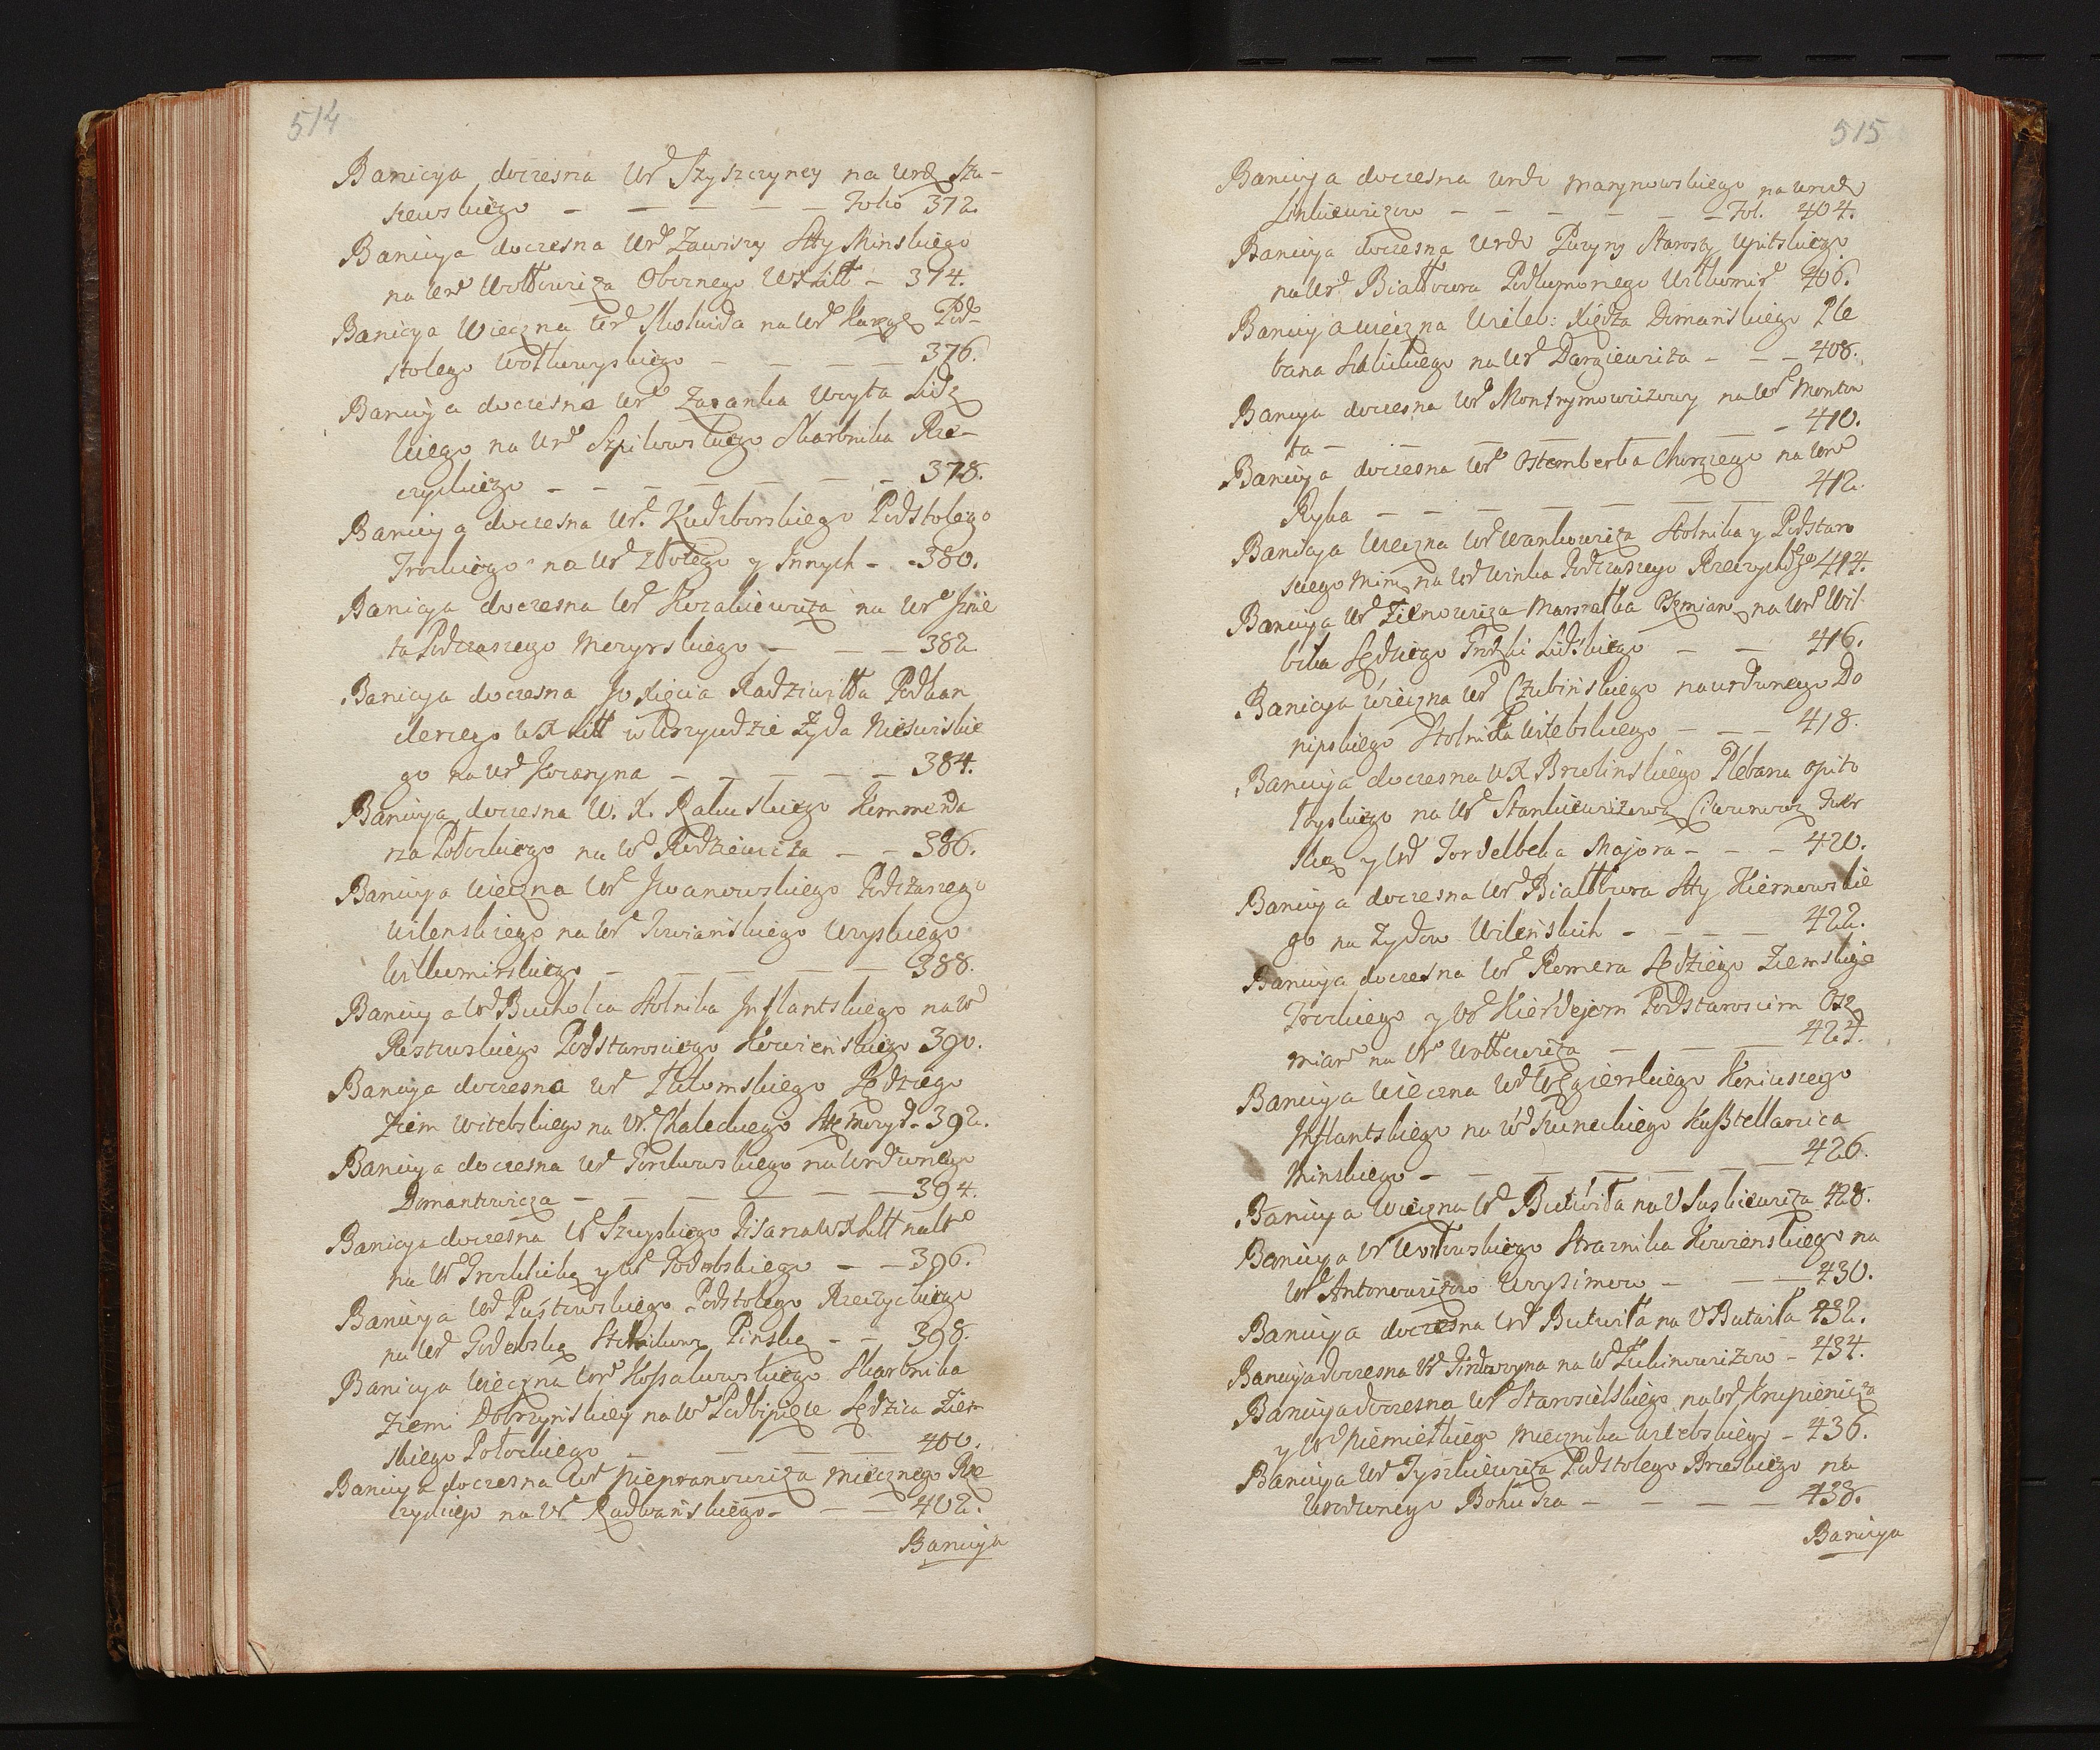 514
Banicya doczesna Ur Szyszczyncy na Urd Sza-
szewskiego - - - - - Folio 372.
Banicya doczesna Urd Zawiszy Stty Minskiego
na Urd Wołłowicza Oboznego WXLitt - 374.
Banicya Wieczna Urd na Urd Pod-
stolego Wołkowyskiego - - - 376.
Banicya doczesna Urd Zaranka Woyta Lidz
kiego na Urd Szpilowskiego Skarbnika Rze-
czyckiego - - - - - - - 378.
Banicya doczesna Ur. Kudzborskiego Podstolego
Trockiego na Ur Złotego y Innych - - 380.
Banicya doczesna Ur Korzakiewicza na Ur
ta Podczaszego Mozyrskiego - - - 382
Banicya doczesna Jo Xięcia Radziwiłła Podkan
clerzego WX Litt w krzywdzie Żyda Nieswiskie
go na Urd - - - - - 384.
Banicya doczesna W. X. Kommenda
rza Połockiego na Ur Radziewicza - - 386.
Banicya wieczna Ur Jwanowskiego Podczaszego
Wilenskiego na Ur Towiańskiego Woyskiego
Wiłkomirskiego - - - - 388.
Banicya Ur Bucholca Stolnika Jnflantskiego na Ur
Podstarosciego Kowieńskiego 390.
Banicya doczesna Ur Sędziego
Ziem Witebskiego na Ur. Chaleckiego Stę Mozyr - 392.
Banicya doczesna Ur na Urodzonego
Domantowicza - - - - - - 394.
Banicya doczesna Ur Pisarza WXLitt
na Ur y Ur Godebskiego - - 396.
Banicya Ur Pustowskiego Podstolego Rzeczyckiego
na Ur Godebską Stolnikową Pinską - - 398.
Banicya Wieczna Ur Kossakowskiego Skarbnika
Ziemi Dobrzyńskiey na Ur Podbipięte Sędzica Ziem
skiego Połockiego - - - - 400.
Banicya doczesna Ur Niepranowicza Miecznego Rze
czyckiego na Ur Radwańskiego - - - 402.
Banicya
515
Banicya doczesna Urdo Marynowskiego na Urodo
Linkiewiczow - - - - - - Fol. 404.
Banicya doczesna Urdo Puzyny Starosty Upitskiego
na Urd Białłozora Podkomorzego Wiłkomir 406.
Banicya wieczna Wieleb: Xiędza Dimańskiego Ple
bana na Urd Dargiewicza - - - 408.
Banicya doczesna Ur Montrymowiczowey na Ur Montow
ta - - - - - - 410.
Banicya doczesna Ur Sztemberka Chorążego na Urd
Ryka - - - - - - 412.
Banicya Wieczna Ur Wankowicza Stolnika y Podstaro
sciego Min, na Ur Winka Podczaszego Rzeczyckiego 414.
Banicya Ur Zienowicza Marszałka Oszmian, na Ur Wil
bika Sędziego Grodzki Lidskiego - - 416.
Banicya wieczna Ur Czubińskiego na urdunego Do
nipskiego Stolnika Witebskiego - - - 418.
Banicya doczesna WX Brzelinskiego Plebana opito
łoyskiego na Ur Stankiewiczową Ciwunową Twer
ską y Ur Tordelbeka Majora - - - 420.
Banicya doczesna Ur Białłozora Stty Kiernowskie
go na Żydow Wileńskich - - - - 422.
Banicya doczesna Ur Romera Sędziego Ziemskiego
Trockiego y Ur Kierdejem Podstaroscim Osz
mian na Ur Wołłowicza - - - 424.
Banicya wieczna Ur Węgierskiego Koniuszego
Jnflantskiego na Ur Kunickiego Kasztellanica
Minskiego - - - - - - - 426.
Banicya Wieczna Ur Butwiła na U Suszkiewicza 428.
Banicya Ur Wołkowskiego Straznika Kowienskiego na
Ur Antonowiczow Woysimow - - - 430.
Banicya doczesna Ur Butwiła na U Butwiła 432.
Banicya doczesna Ur na Ur Żukinowiczow - 434.
Banicya doczesna Ur Starosielskiego na Ur Krupienicza
y Ur Niemietkiego Miecznika Witebskiego - 436.
Banicya Ur Tyszkiewicza Podstolego Brzeskiego na
Urodzonego Bohusza - - - - 438.
Banicya